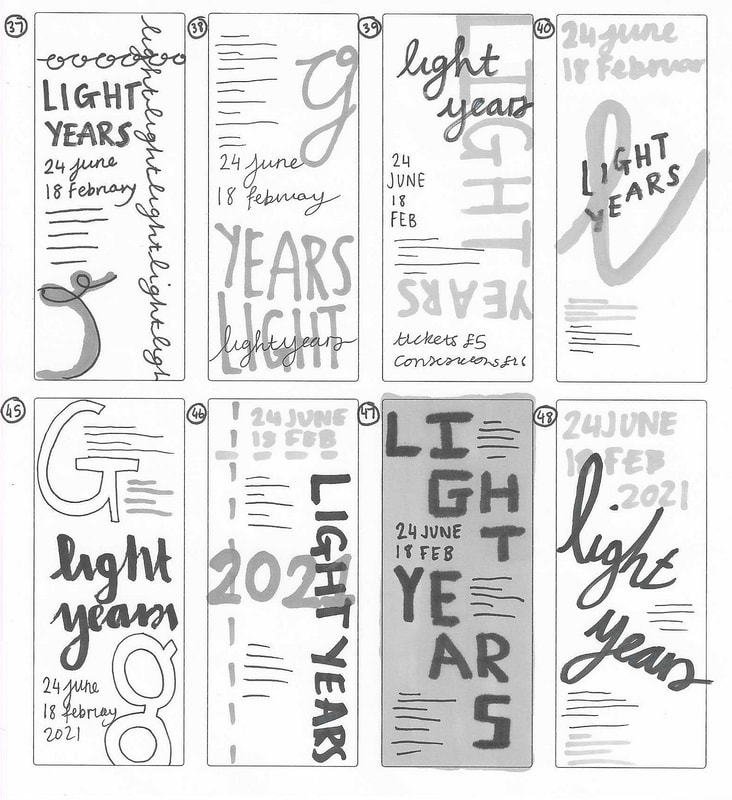 37
lightlightlightlightlightligh
LIGHT
YEARS
24 june
18 february
38
g
24 June
18 february
YEARS
LIGHT
lightyears
39
LIGHT
light
years
24
JUNE
18
FEB
YEARS
tickets £5
40
24 june
18 februar
l
LIGHT
YEARS
45
G
light
years
g
24 june
18 februay
2021
46
24 JUNE
18 FEB
LIGHT YEARS
2021
47
LI
GH
T
24 JUNE
18 FEB
YE
AR
S
48
24 JUNE
18 FEB
2021
light
years